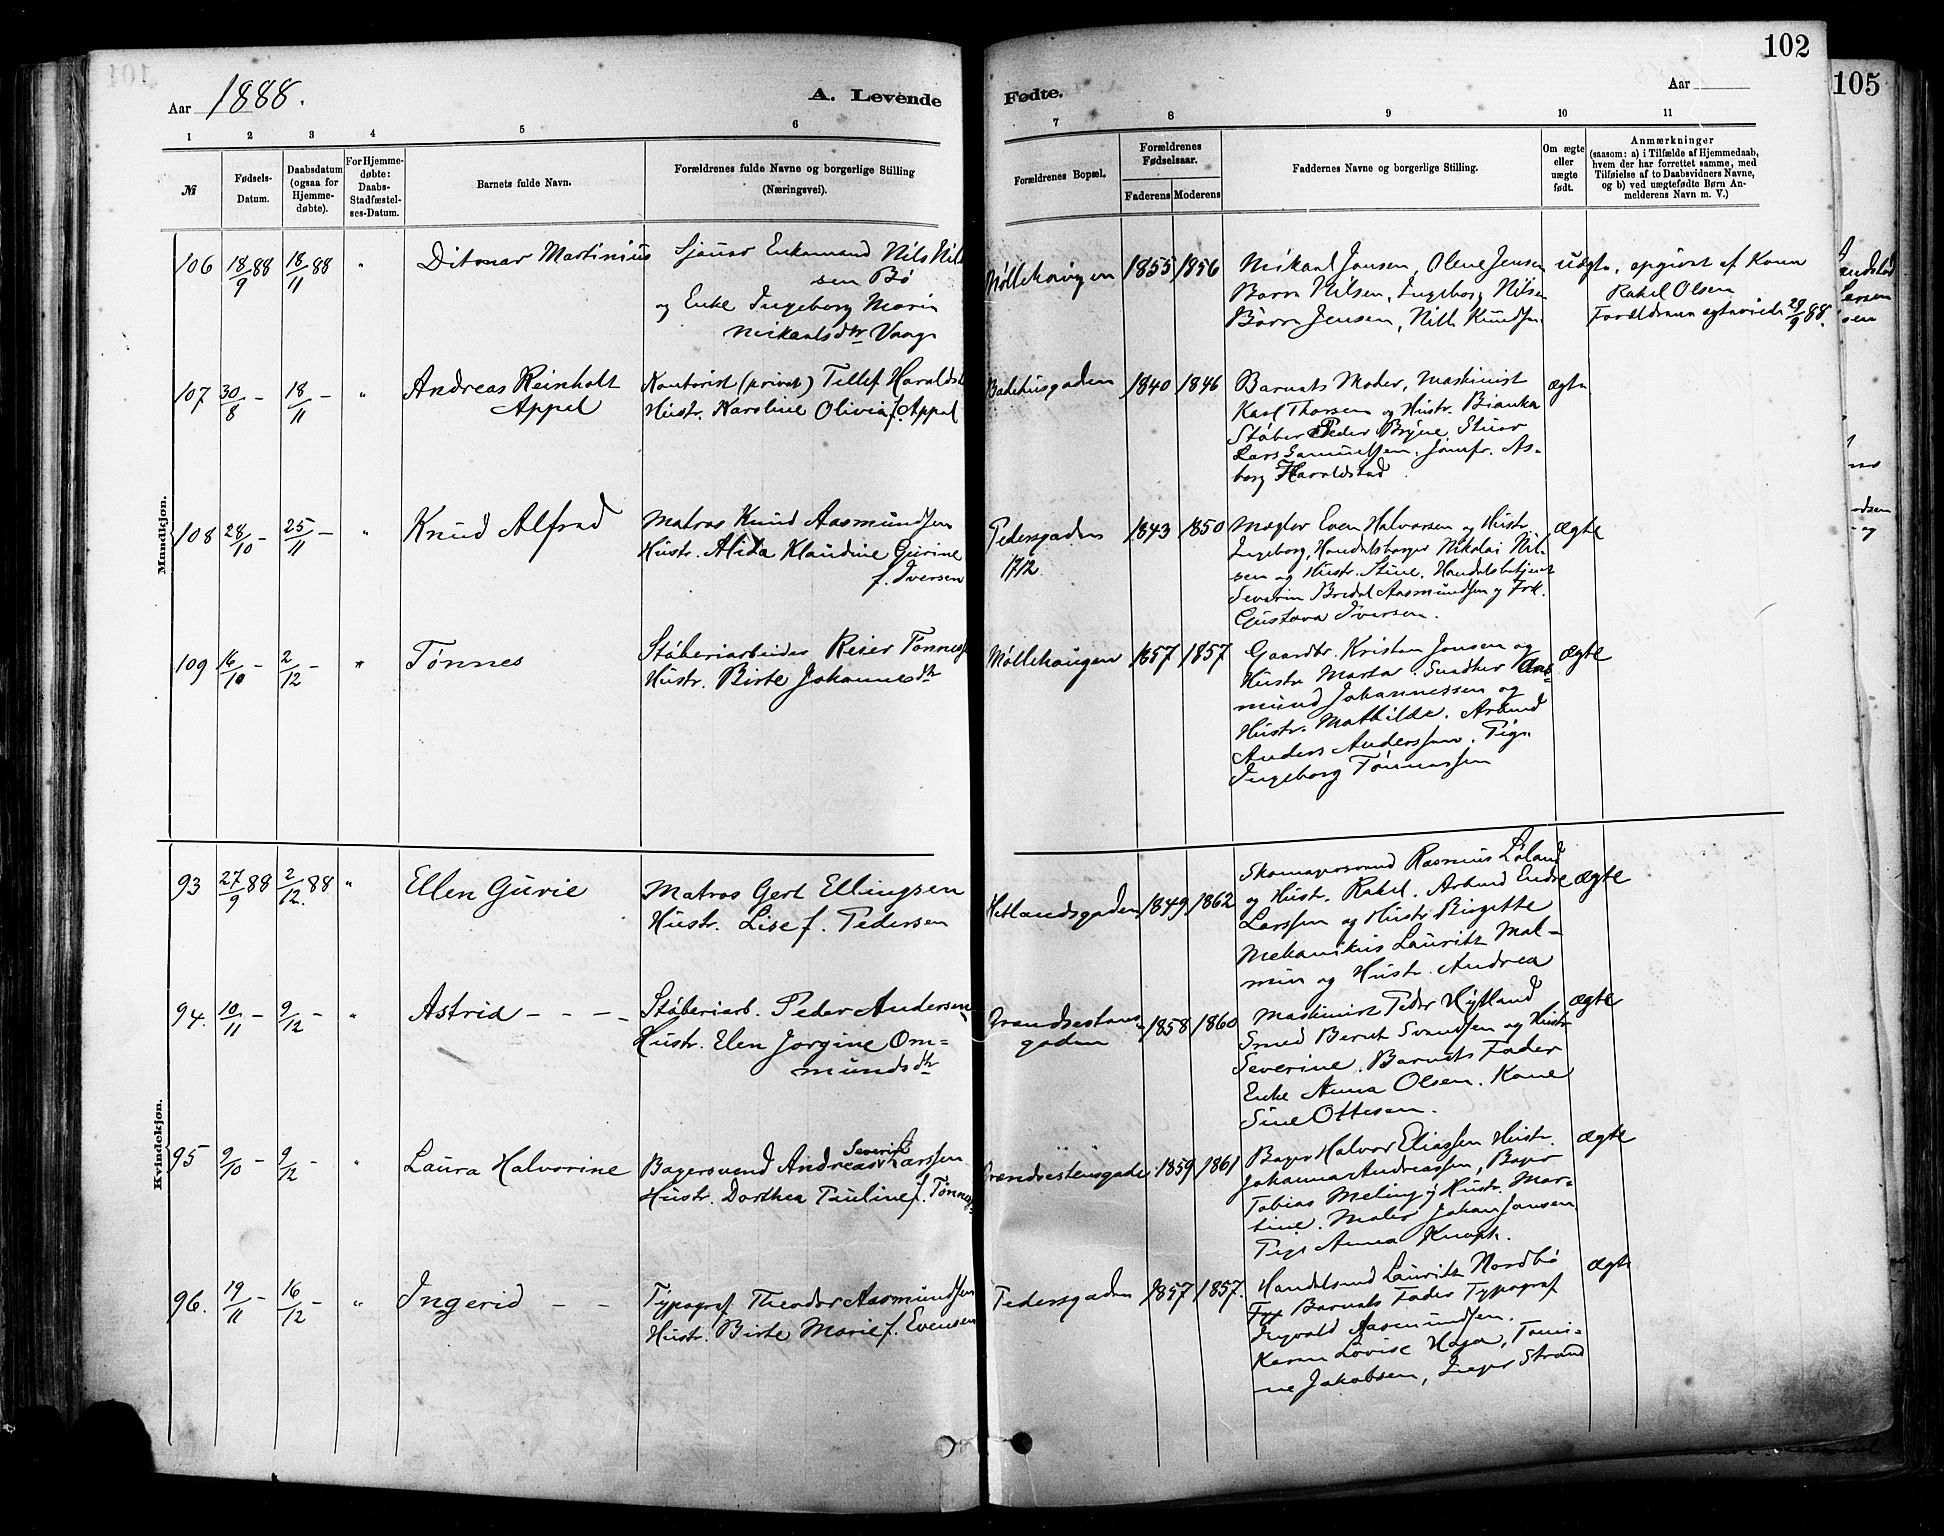 102
105
Aar 1888.
A. Levende
Fødte.
Aar
1 2 3 4 5 6 7 8 9 10 11
№
Fødsels-
Datum.
Daabsdatum
(ogsaa for
Hjemme-
døbte).
For Hjemme-
døbte:
Daabs-
Stadfæstel-
ses-Datum.
Barnets fulde Navn.
Forældrenes fulde Navne og borgerlige Stilling
(Næringsvei).
Forældrenes Bopæl.
Forældrenes
Fødselsaar.
Faderens Moderens
Faddernes Navne og borgerlige Stilling.
Om ægte
eller
uægte
født.
Anmærkninger
(saasom: a) i Tilfælde af Hjemmedaab,
hvem der har forrettet samme, med
Tilføielse af to Daabsvidners Navne,
og b) ved uægtefødte Børn An-
melderens Navn m. V.)
Mandkjøn.
106 18/9 88 18/11 88 "
Ditmar Martinius
Sjauer Enkemand Nils Nil
sen Bø
og Enke Ingeborg Marie
Mikaelsdtr Vaage
Møllehaugen 1855 1856
Mikael Jansen, Olene Jensen
Baren Nilsen, Ingeborg Nilsen
Børre Jensen, Nils Knudsen
uægte, opgivet af Kone
Rakel Olsen
Forældrene ægteviede 29/9 88.
107 30/8 - 18/11 - "
Andreas Reinholt
Appel
Kontorist (privat) Tellef Haraldst
Hustr. Karoline Olivia f. Appel
Badehusgaden 1840 1846
Barnets Moder, Maskinist
Karl Thorsen og Hustr. Bianka
Støber Peder Bryne, Stuer
Lars Samuelsen, Jomfr. As-
borg Haraldstad
ægte
108 28/10 - 25/11 - "
Knud Alfred
Matros Knud Aasmundsen
Hustr. Alida Klaudine Gurine
f. Iversen
Pedersgaden
1843 1850
Mægler Even Halvorsen og Hustr
Ingeborg, Handelsborger Nikolai Nil-
sen og Hustr. Stine. Handelsbetjent
Severin Bredal Aasmundsen og Frk.
Gustava Iversen.
ægte
109 16/10 - 2/12 - "
Tønnes
Støberiarbeider Reier Tønness
Hustr. Birte Johannesdtr
Møllehaugen 1857 1857
Gaardbr. Kristen Jonsen og
Hustr Marta. Snedker Aas-
mund Johannessen og
Hustr. Mathilde. Arbeid
Anders Anderssen. Pige
Ingeborg Tønnessen
ægte
Kvindekjøn.
93 27/9 88 2/12. 88 "
Ellen Gurie
Matros Gert Ellingsen
Hustr. Lise f. Pedersen
Hetlandsgaden 1849 1862
Skomagersvend Rasmus Løland
og Hustr. Rakel. Arbeid Endre
Larssen og Hustr Birgitte
Mekanikus Lauritz Mal-
min og Hustr. Andrea
ægte
94. 10/11 - 9/12 - "
Astrid - - -
Støberiarb. Peder Andersen
Hustr. Elen Jorgine Om-
mundsdtr
gaden
1858 1860
Maskinist Peder Hytland
Smed Bernt Svendsen og Hustr
Severine. Barnets Fader
Enke Anna Olsen. Kone
Sine Ottesen.
ægte
95 9/10 - 9/12 - "
Laura Halvorine
Severin
Bagersvend Andreas Larssen
Hustr. Dorthea Pauline f. Tønnes
1859 1861
Bager Halvor Eliassen Hustr.
Johanna Andreassen, Bager
Tobias Meling og Hustr. Mar-
tine. Maler Johan Jansen
Pige Anna Knoph.
ægte
96. 19/11 - 16/12 - "
Ingerid - -
Typograf Theodor Aasmundsen
Hustr. Birte Marie f. Evensen
Pedersgaden 1857 1857.
Handelsmd Lauritz Nordbø
Typ Barnets Fader Typograf
Ingvald Aasmundsen.
Karen Lovise Haga, Tomi-
ne Jakobsen, Inger Strand
ægte